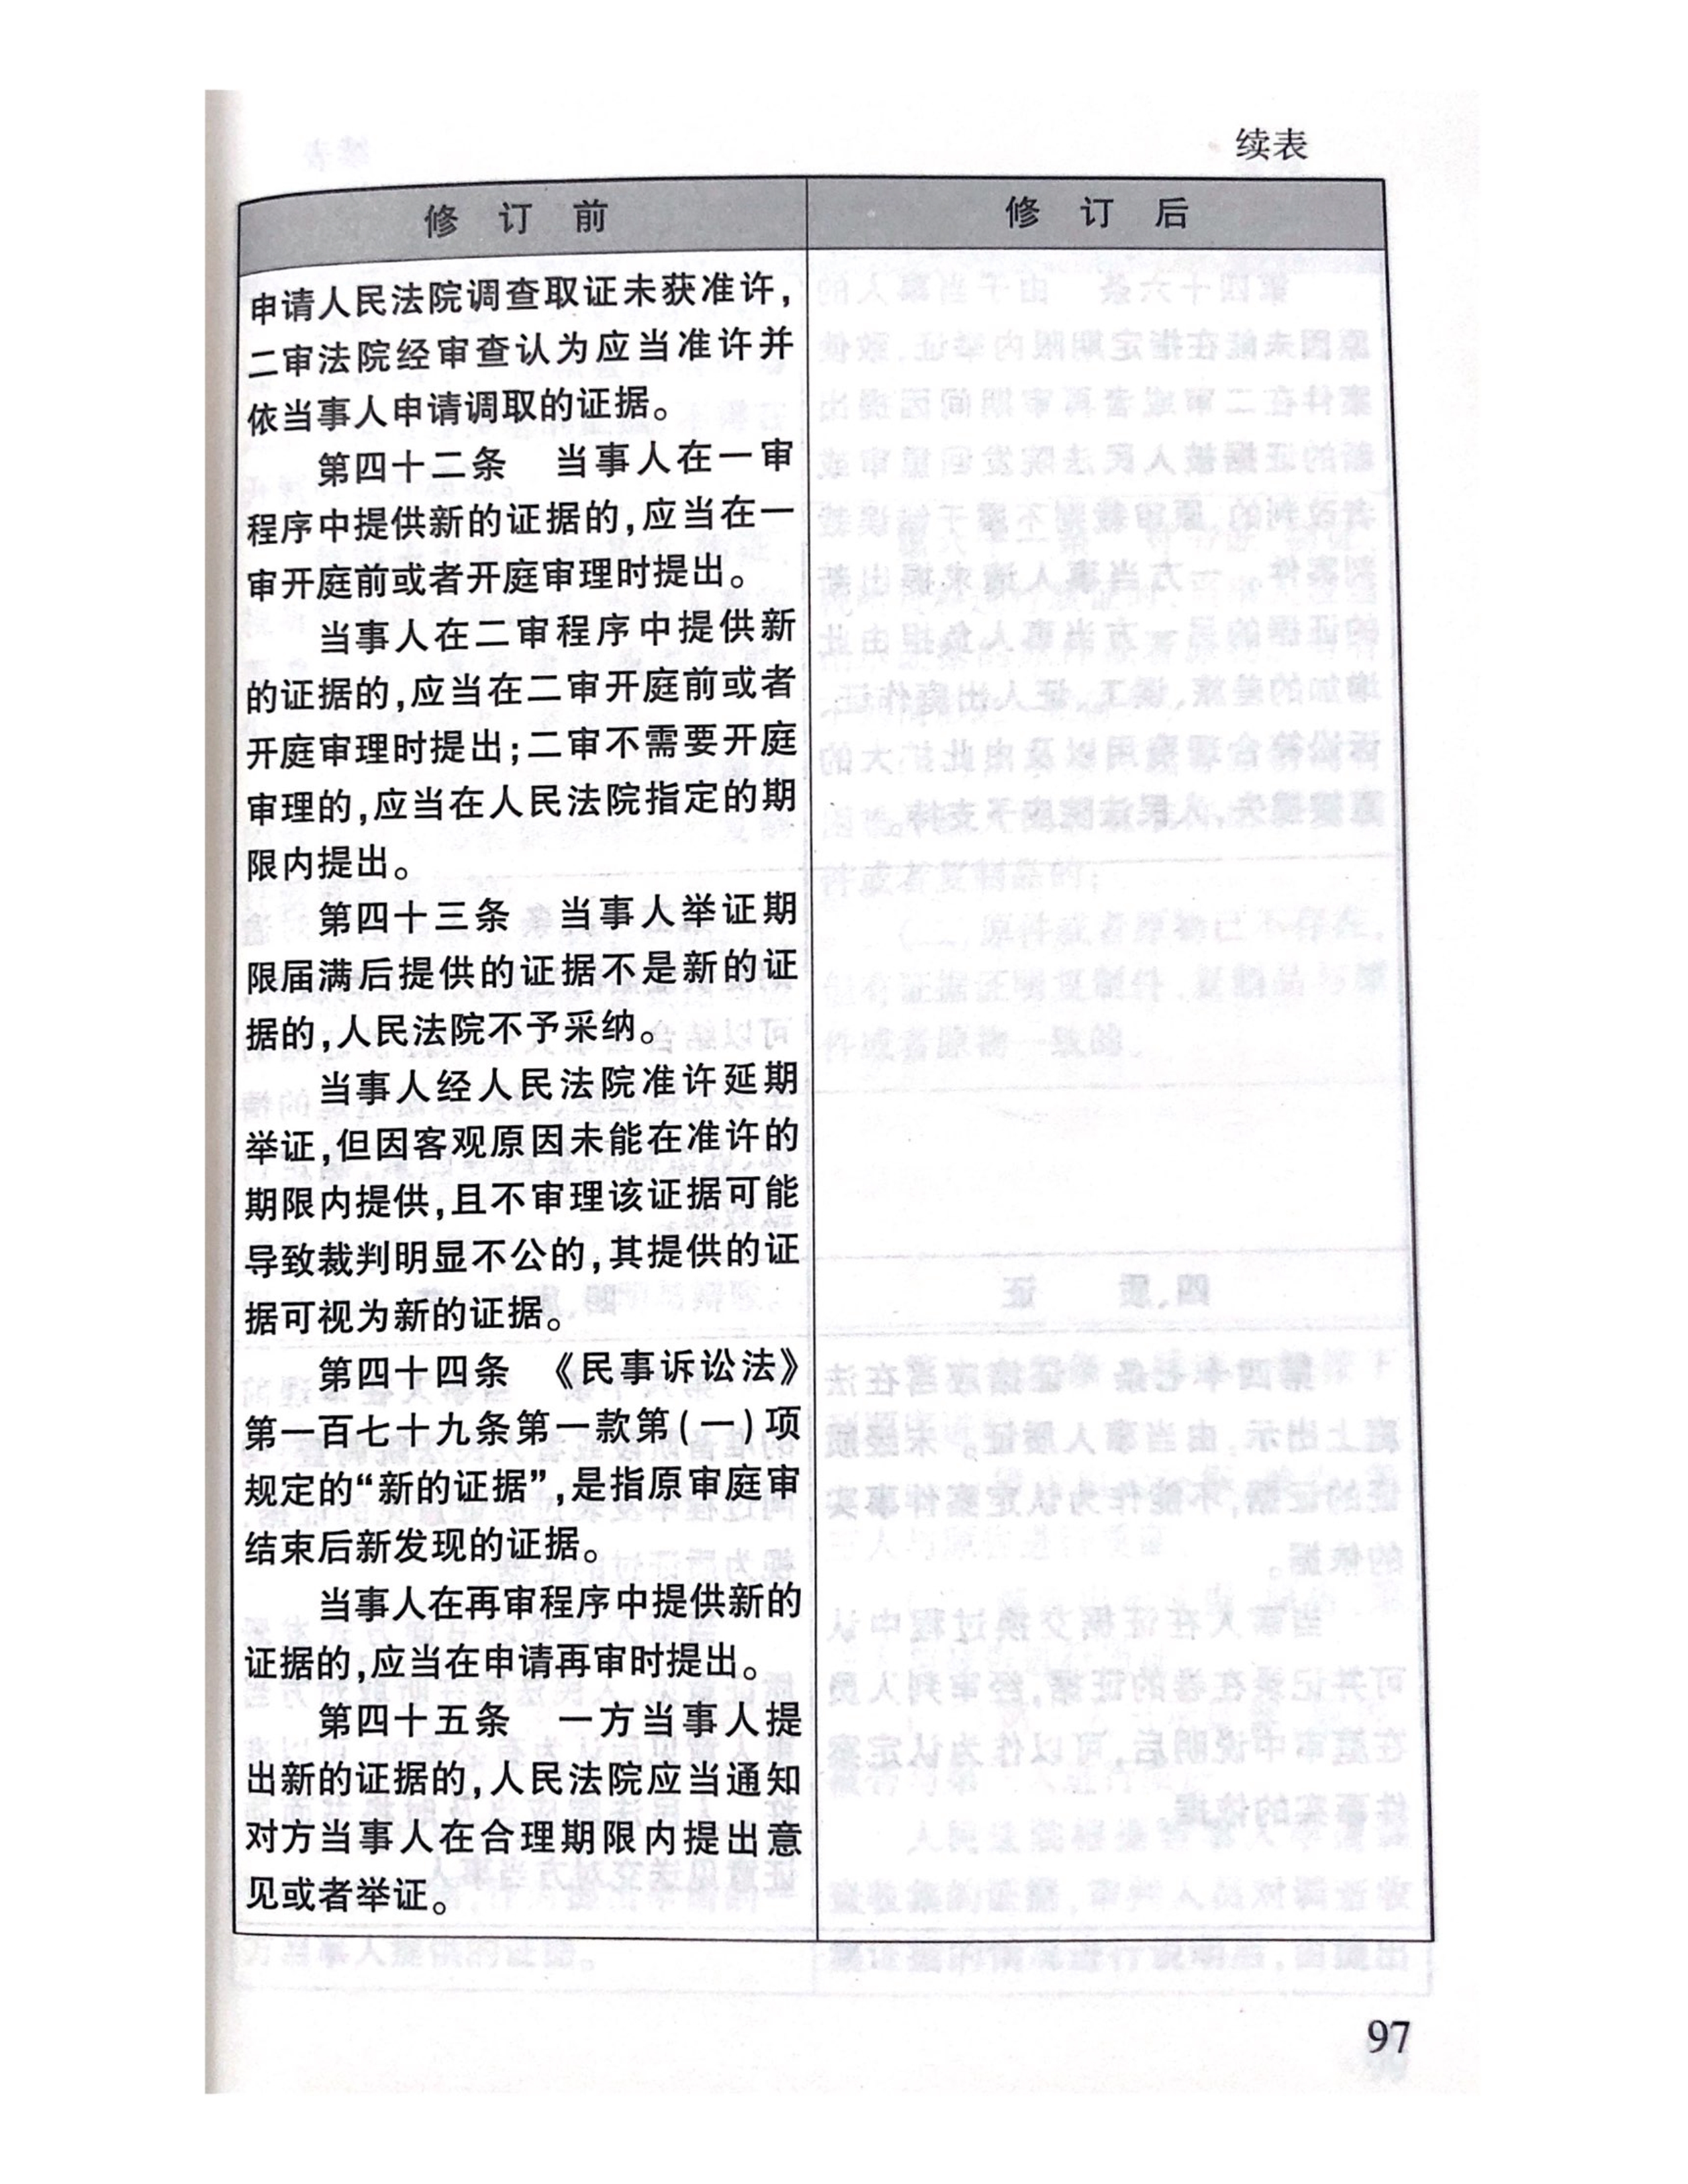 续表
修订前
修订后
申请人民法院调查取证未获准许，
二审法院经审查认为应当准许并
依当事人申请调取的证据。
第四十二条　当事人在一审
程序中提供新的证据的，应当在一
审开庭前或者开庭审理时提出。
当事人在二审程序中提供新
的证据的，应当在二审开庭前或者
开庭审理时提出；二审不需要开庭
审理的，应当在人民法院指定的期
限内提出。
第四十三条　当事人举证期
限届满后提供的证据不是新的证
据的，人民法院不予采纳。
当事人经人民法院准许延期
举证，但因客观原因未能在准许的
期限内提供，且不审理该证据可能
导致裁判明显不公的，其提供的证
据可视为新的证据。
第四十四条　《民事诉讼法》
第一百七十九条第一款第（一）项
规定的“新的证据”，是指原审庭审
结束后新发现的证据。
当事人在再审程序中提供新的
证据的，应当在申请再审时提出。
第四十五条　一方当事人提
出新的证据的，人民法院应当通知
对方当事人在合理期限内提出意
见或者举证。
97